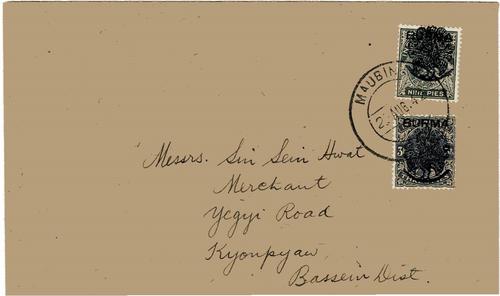 BURMA
NINE PIES
MAUBIN
AUG.4
BURMA
Messrs. Sin Sein Hwat
Merchant
Yegyi Road
Kyonpyaw
Bassein Dist.